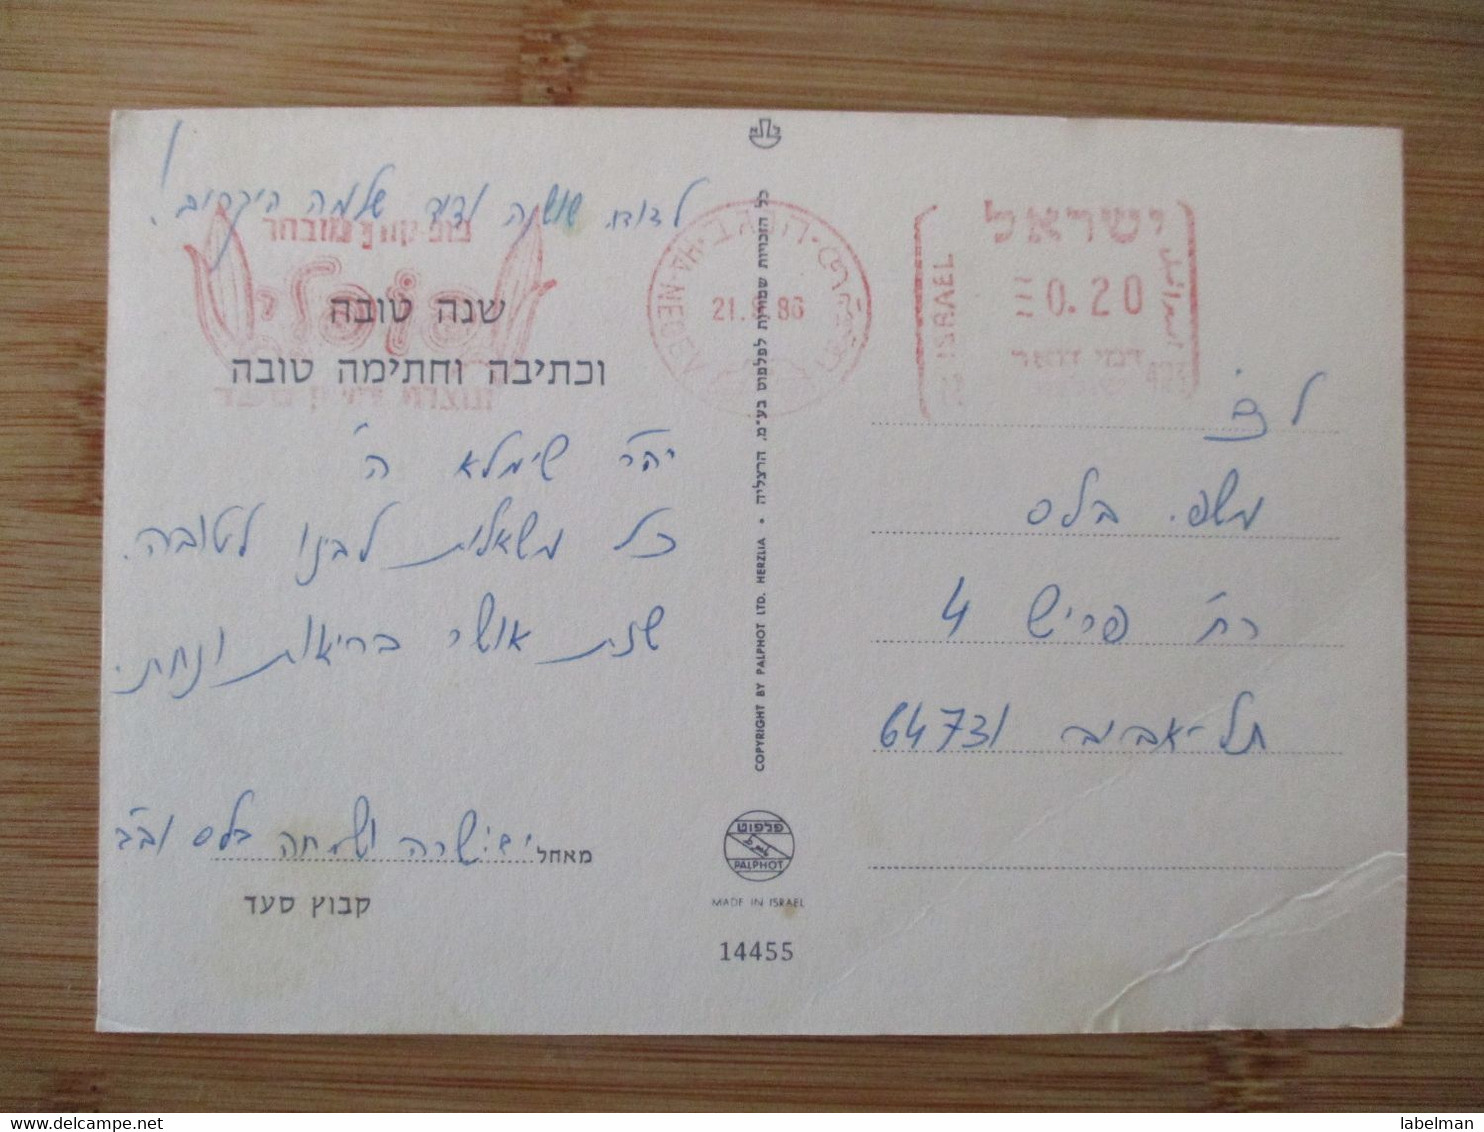 לדודה שושנה ודוד שלמה היקרים!
פופ-קורן מובחר
שנה טובה
וכתיבה וחתימה טובה
יה"ר שימלא ה'
כל משאלות לבינו לטובה.
שנת אושר בריאות ונחת.
מאחל
שרה ושמחה בלס וב"ב
קבוץ סעד
כל הזכויות שמורות לפלפוט בע"מ. הרצליה • COPYRIGHT BY PALPHOT LTD. HERZLIA
פלפוט
PALPHOT
MADE IN ISRAEL
14455
HA-NEGEV
21. 86
ישראל
ISRAEL
0.20
דמי דואר
משפ. בלס
רח' פריש 4
תל-אביב 64731